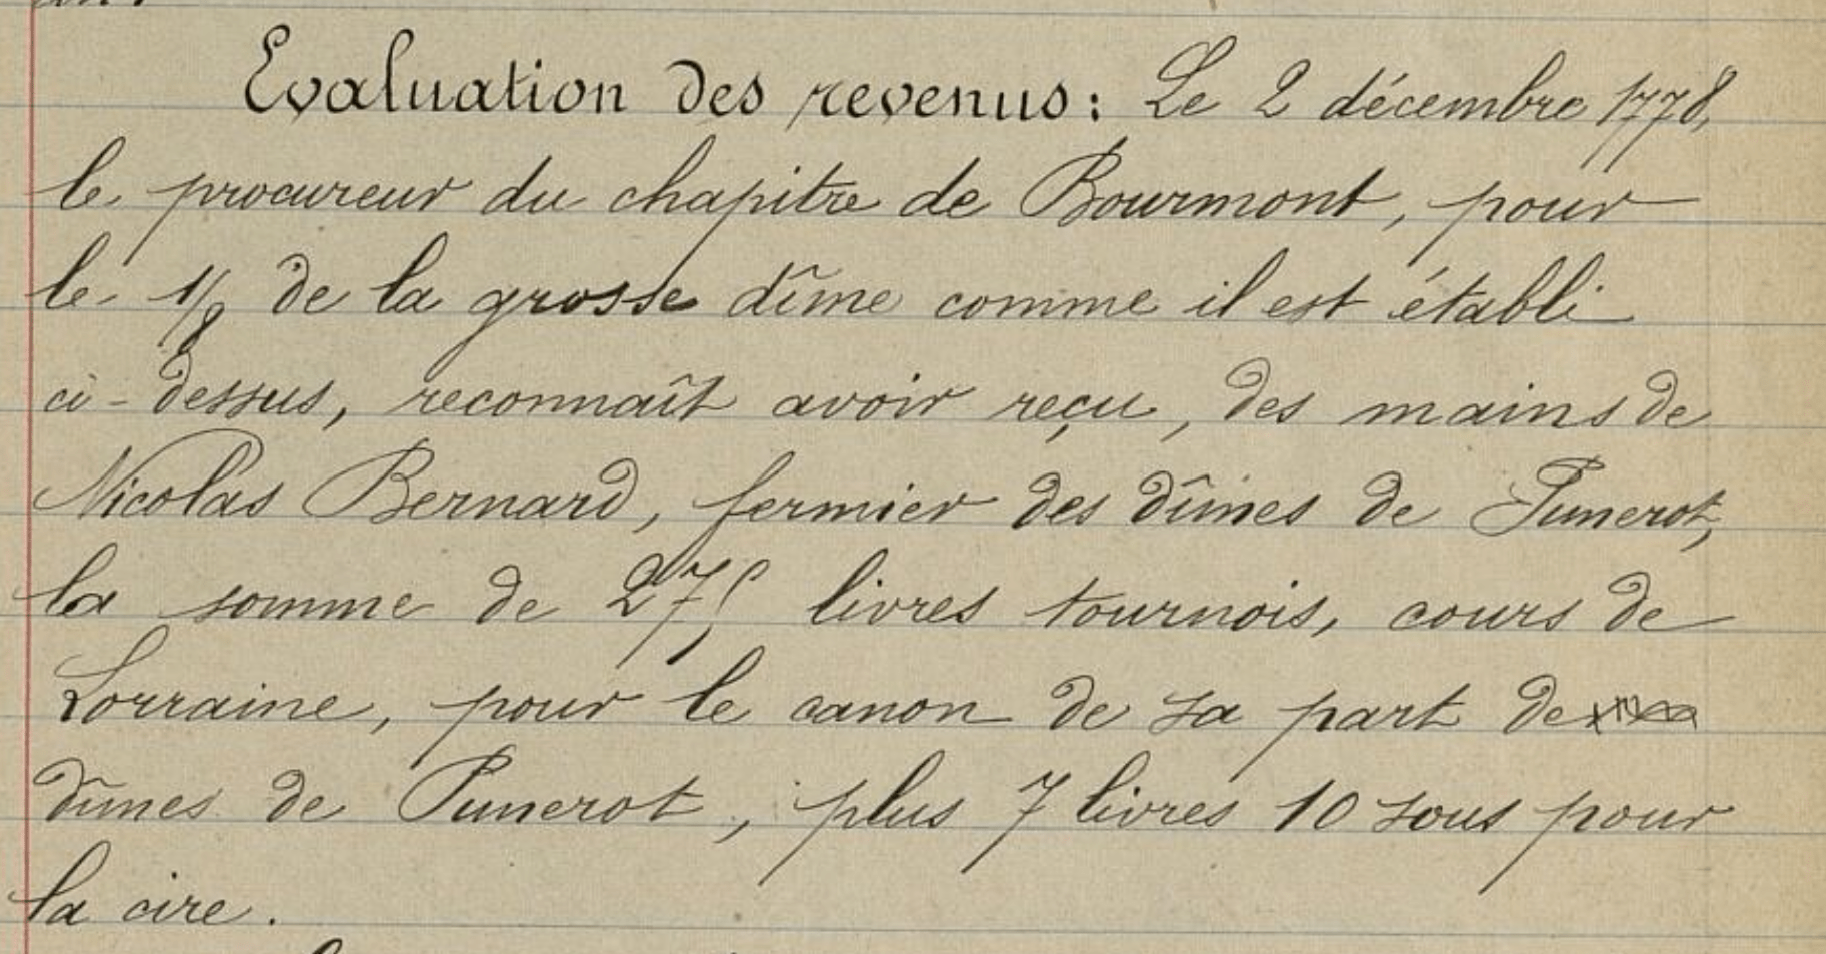 Evaluation des revenus : Le 2 décembre 1778,
le procureur du chapitre de Bourmont, pour
le 1/8 de la grosse dîme comme il est établi
ci-dessus, reconnaît avoir reçu, des mains de
Nicolas Bernard, fermier des dîmes de Punerot,
la somme de 275 livres tournois, cours de
Lorraine, pour le canon de sa part de
dîmes de Punerot, plus 7 livres 10 sous pour
la cire.